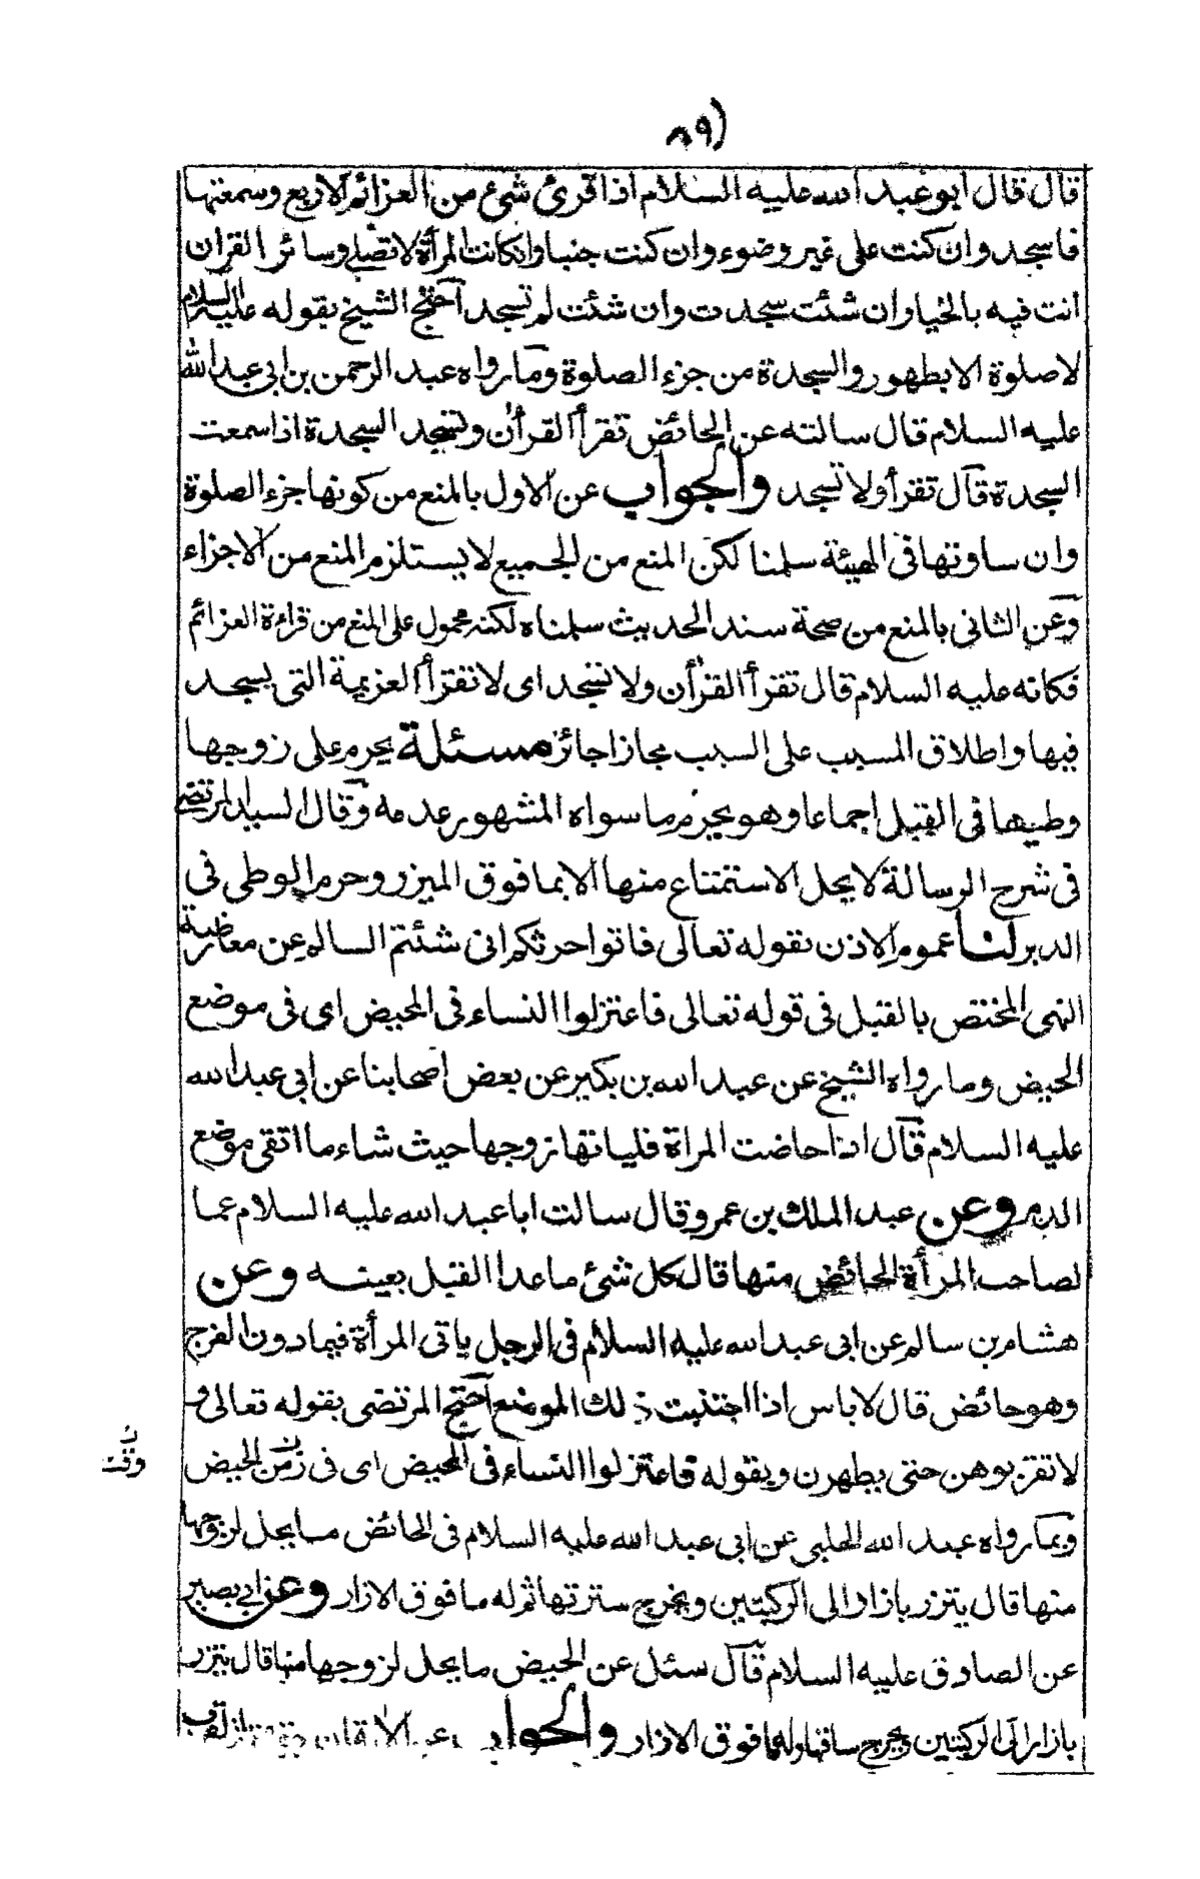 (٨٩
قال قال ابو عبد الله عليه السلام اذا قرئ شئ من العزائم الاربع وسمعتها
فاسجد وان كنت على غير وضوء وان كنت جنبا وانكانت المرأة لا تصلى وسائر القران
انت فيه بالخيار ان شئت سجدت وان شئت لم تسجد احتج الشيخ بقوله عليه السلام
لا صلوة الا بطهور والسجدة من جزء الصلوة وما رواه عبد الرحمن بن ابى عبد الله
عليه السلام قال سالته عن الحائض تقرأ القرأن وتسجد السجدة اذا سمعت
السجدة قال تقرأ ولا تسجد والجواب عن الاول بالمنع من كونها جزء الصلوة
وان ساوتها فى الهيئة سلمنا لكن المنع من الجميع لا يستلزم المنع من الاجزاء
وعن الثانى بالمنع من صحة سند الحديث سلمناه لكنه محمول على المنع من قراءة العزائم
فكانه عليه السلام قال تقرأ القرأن ولا تسجد اى لا تقرأ العزيمة التى يسجد
فيها واطلاق المسبب على السبب مجازا جائز مسئلة يحرم على زوجها
وطيها فى القبل اجماعا وهو يحرم ما سواه المشهور عدمه وقال السيد المرتضى
فى شرح الرسالة لا يحل الاستمتاع منها الا بما فوق الميزر وحرم الوطى فى
الدبر لنا عموم الاذن بقوله تعالى فاتوا حرثكم انى شئتم السالم عن معارضة
النهى المختص بالقبل فى قوله تعالى فاعتزلوا النساء فى المحيض اى فى موضع
الحيض وما رواه الشيخ عن عبد الله بن بكير عن بعض اصحابنا عن ابى عبد الله
عليه السلام قال اذا حاضت المراة فلياتها زوجها حيث شاء ما اتقى موضع
الدم وعن عبد الملك بن عمرو قال سالت ابا عبد الله عليه السلام عما
لصاحب المرأة الحائض منها قال كل شئ ما عدا القبل بعينه وعن
هشام بن سالم عن ابى عبد الله عليه السلام فى الرجل ياتى المرأة فيما دون الفرج
وهو حائض قال لا باس اذا اجتنب ذلك الموضع احتج المرتضى بقوله تعالى و
لا تقربوهن حتى يطهرن وبقوله فاعتزلوا النساء فى المحيض اى فى زمن الحيض
وقت
وبما رواه عبد الله الحلبى عن ابى عبد الله عليه السلام فى الحائض ما يحل لزوجها
منها قال يتزر بازار الى الركبتين ويخرج سترتها ثم له ما فوق الازار وعن ابى بصير
عن الصادق عليه السلام قال سئل عن الحيض ما يحل لزوجها منها قال يتزر
بازار الى الركبتين ويخرج ساقها وله ما فوق الازار والجواب عن